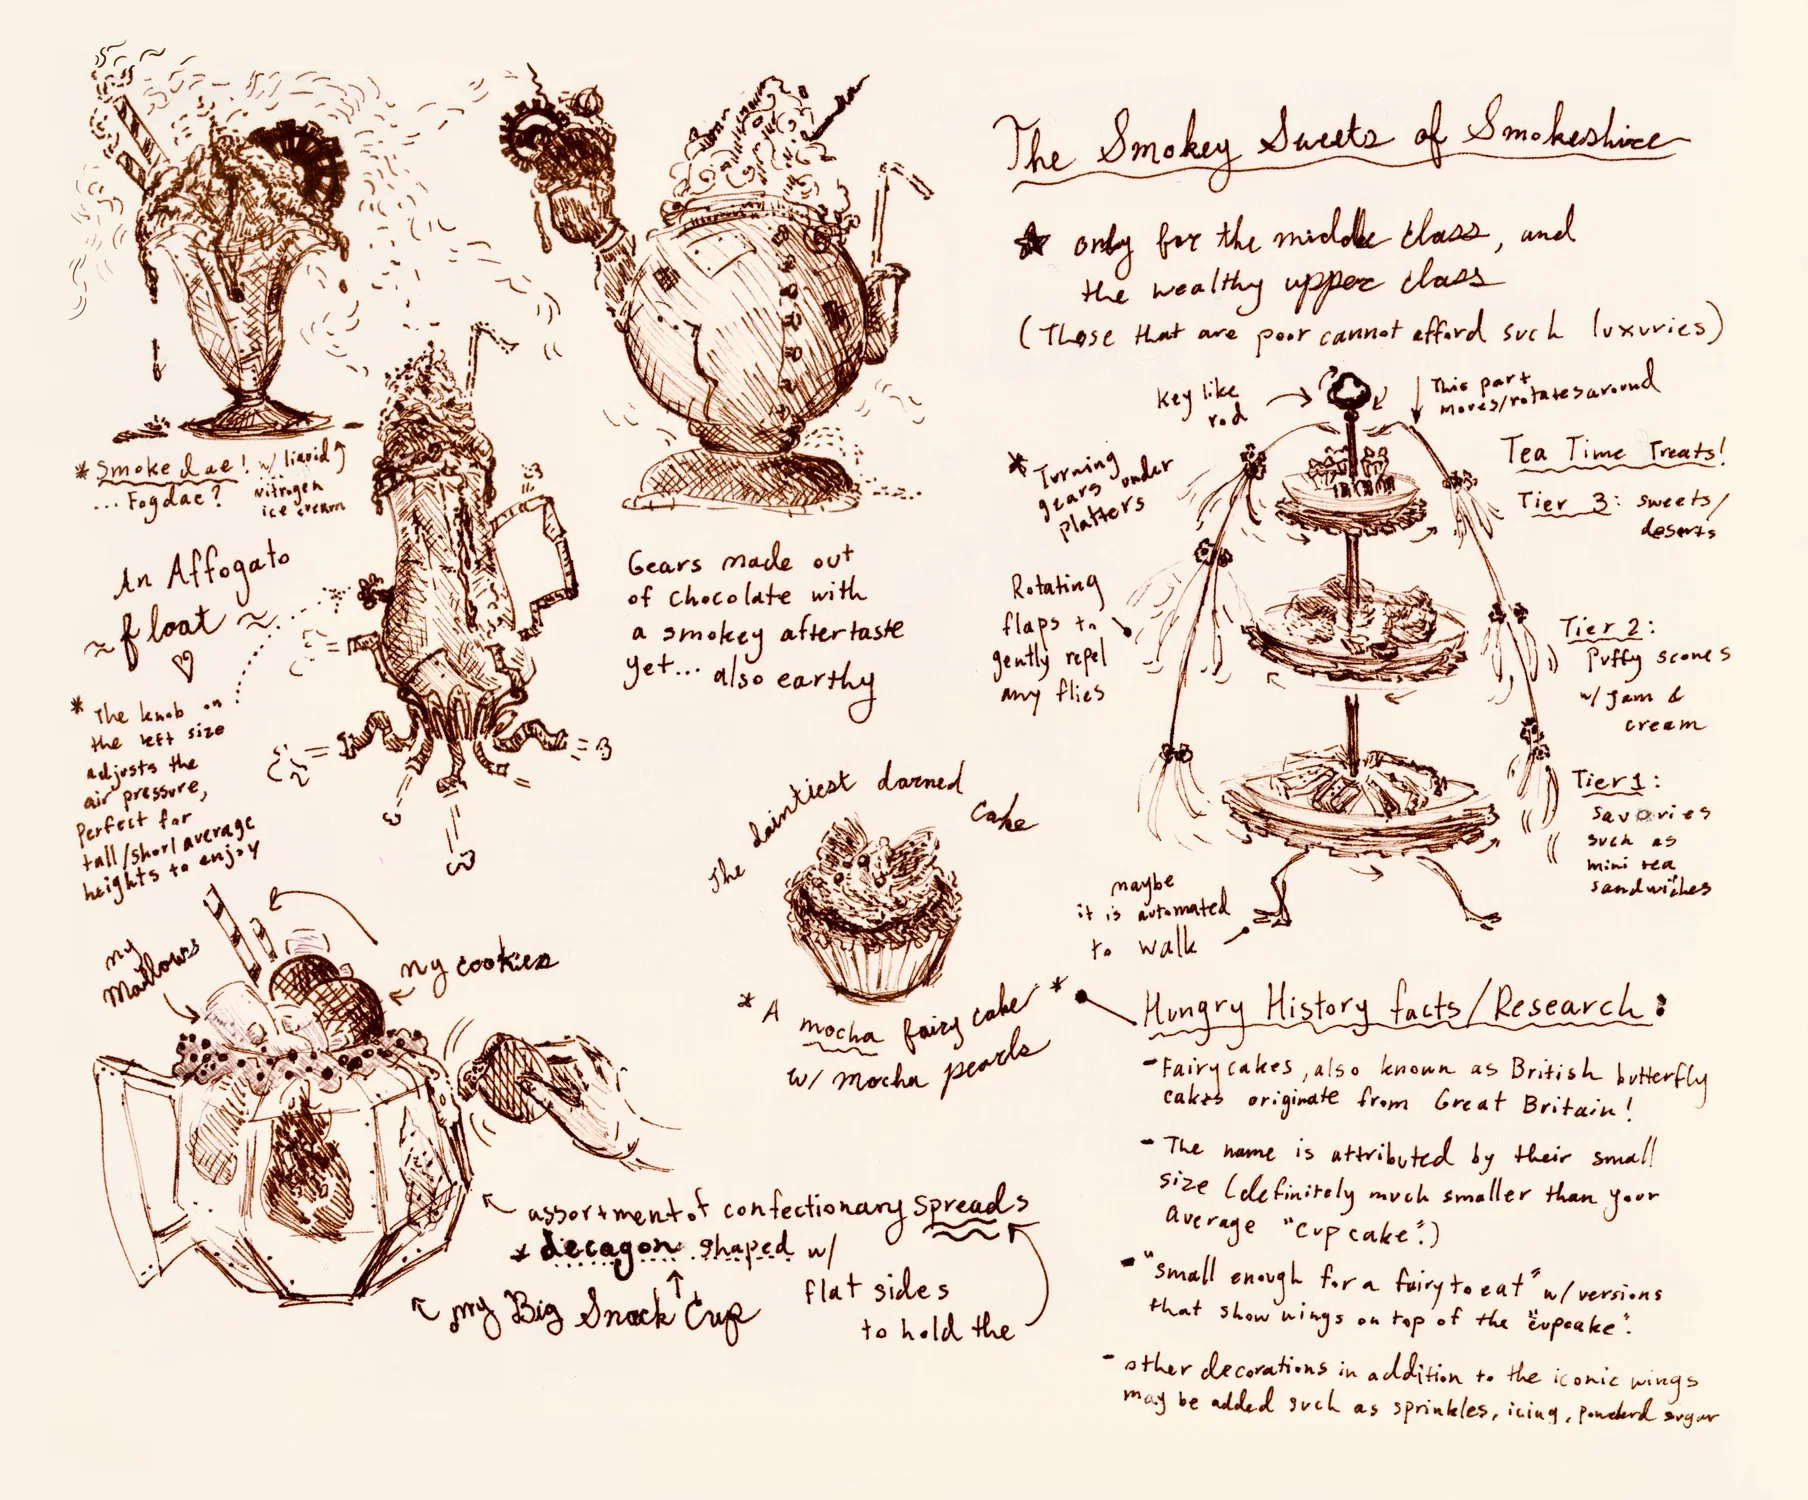 The Smokey Sweets of Smokeshire
★ only for the middle class, and
the wealthy upper class
(Those that are poor cannot afford such luxuries)
Key like
rod
This part
moves/rotates around
* Turning
gears under
platters
Tea Time Treats!
Tier 3: sweets/
deserts
Rotating
flaps to
gently repel
any flies
Tier 2:
Puffy scones
w/ jam &
cream
Tier 1:
savories
such as
mini tea
sandwiches
maybe
it is automated
to walk
* Smokedae! w/ liquid
... Fogdae? nitrogen
ice cream
An Affogato
~ float ~
* The knob on
the left size
adjusts the
air pressure,
Perfect for
tall/short/average
heights to enjoy
Gears made out
of chocolate with
a smokey aftertaste
yet... also earthy
The daintiest darned cake
* A mocha fairy cake *
w/ mocha pearls
my
Mallows
my cookies
assortment of confectionary spreads
* decagon shaped w/
flat sides
to hold the
my Big Snack Cup
Hungry History facts/Research:
- Fairycakes, also known as British butterfly
cakes originate from Great Britain!
- The name is attributed by their small
size (definitely much smaller than your
average "cupcake".)
- "small enough for a fairy to eat" w/ versions
that show wings on top of the "cupcake".
- other decorations in addition to the iconic wings
may be added such as sprinkles, icing, powderd sugar